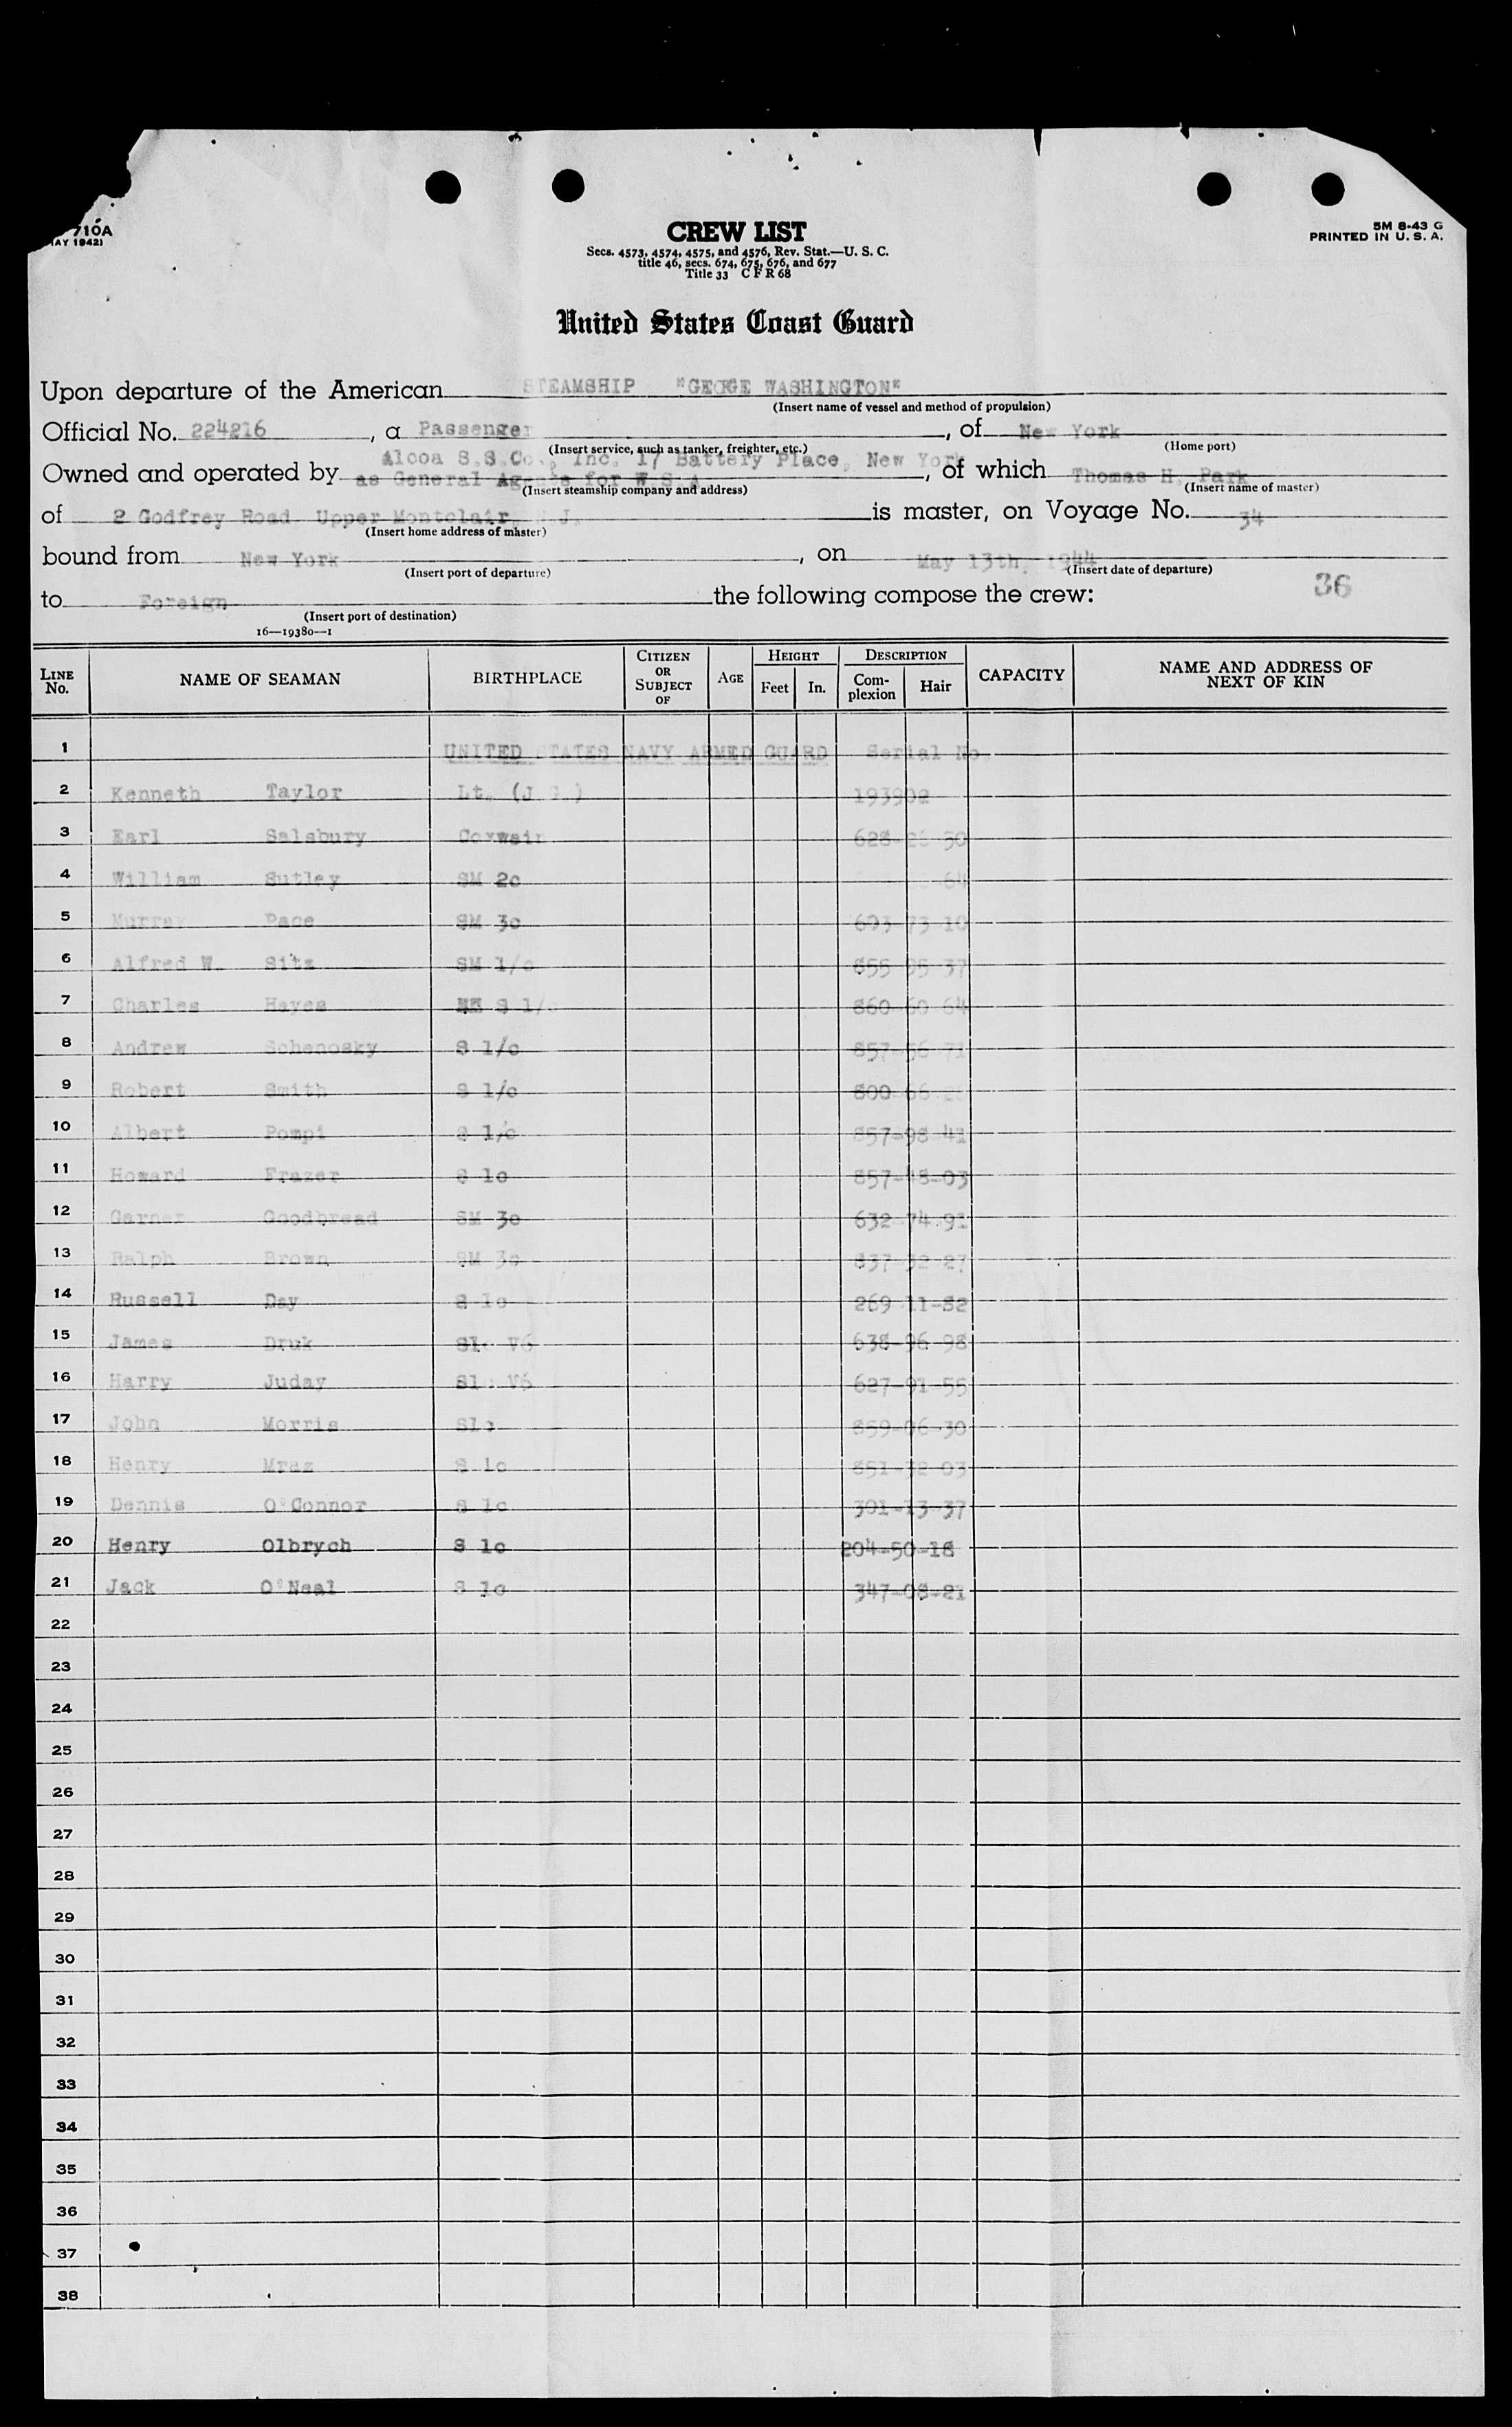 710A
MAY 1942)
5M 8-43 G
PRINTED IN U. S. A.
CREW LIST
Secs. 4573, 4574, 4575, and 4576, Rev. Stat.—U. S. C.
title 46, secs. 674, 675, 676, and 677
Title 33 C F R 68
United States Coast Guard
Upon departure of the American STEAMSHIP "GEOGE WASHINGTON"
(Insert name of vessel and method of propulsion)
Official No. 224216, a Passenger, of New York
(Insert service, such as tanker, freighter, etc.) (Home port)
Alcoa S.S.Co., Inc. 17 Battery Place, New York
Owned and operated by as General Agents for W.S.A., of which Thomas H. Park
(Insert steamship company and address) (Insert name of master)
of 2 Godfrey Road. Upper Montclair, N.J. is master, on Voyage No. 34
(Insert home address of master)
bound from New York, on May 13th, 1944
(Insert port of departure) (Insert date of departure)
to Foreign the following compose the crew: 36
(Insert port of destination)
16—19380—1
LINE No. NAME OF SEAMAN BIRTHPLACE CITIZEN OR SUBJECT OF AGE HEIGHT Feet In. DESCRIPTION Complexion Hair CAPACITY NAME AND ADDRESS OF NEXT OF KIN
1 UNITED STATES NAVY ARMED GUARD Serial No.
2 Kenneth Taylor Lt. (J.G.) 193902
3 Earl Salsbury Coxwain 628- 50
4 William Sutley SM 2c 64
5 Murray Pace SM 3c 603-73-10
6 Alfred W. Sitz SM 1/c 855 95 37
7 Charles Hayes S 1/c 860-60-64
8 Andrew Schenosky S 1/c 857-56-71
9 Robert Smith S 1/c 800-66
10 Albert Pompi S 1/c 857-98-41
11 Howard Frazer S 1c 857-48-03
12 Garner Goodbread SM 3c 632-74-91
13 Ralph Brown SM 3c 837-32-27
14 Russell Day S 1c 269-11-82
15 James Druk S1c V6 638-96-98
16 Harry Juday S1c V6 627-91-55
17 John Morris S1c 859-06-30
18 Henry Mraz S 1c 851-32-03
19 Dennis O'Connor S 1c 301-13-37
20 Henry Olbrych S 1c 204-50-18
21 Jack O'Neal S 1c 347-08-21
22
23
24
25
26
27
28
29
30
31
32
33
34
35
36
37
38